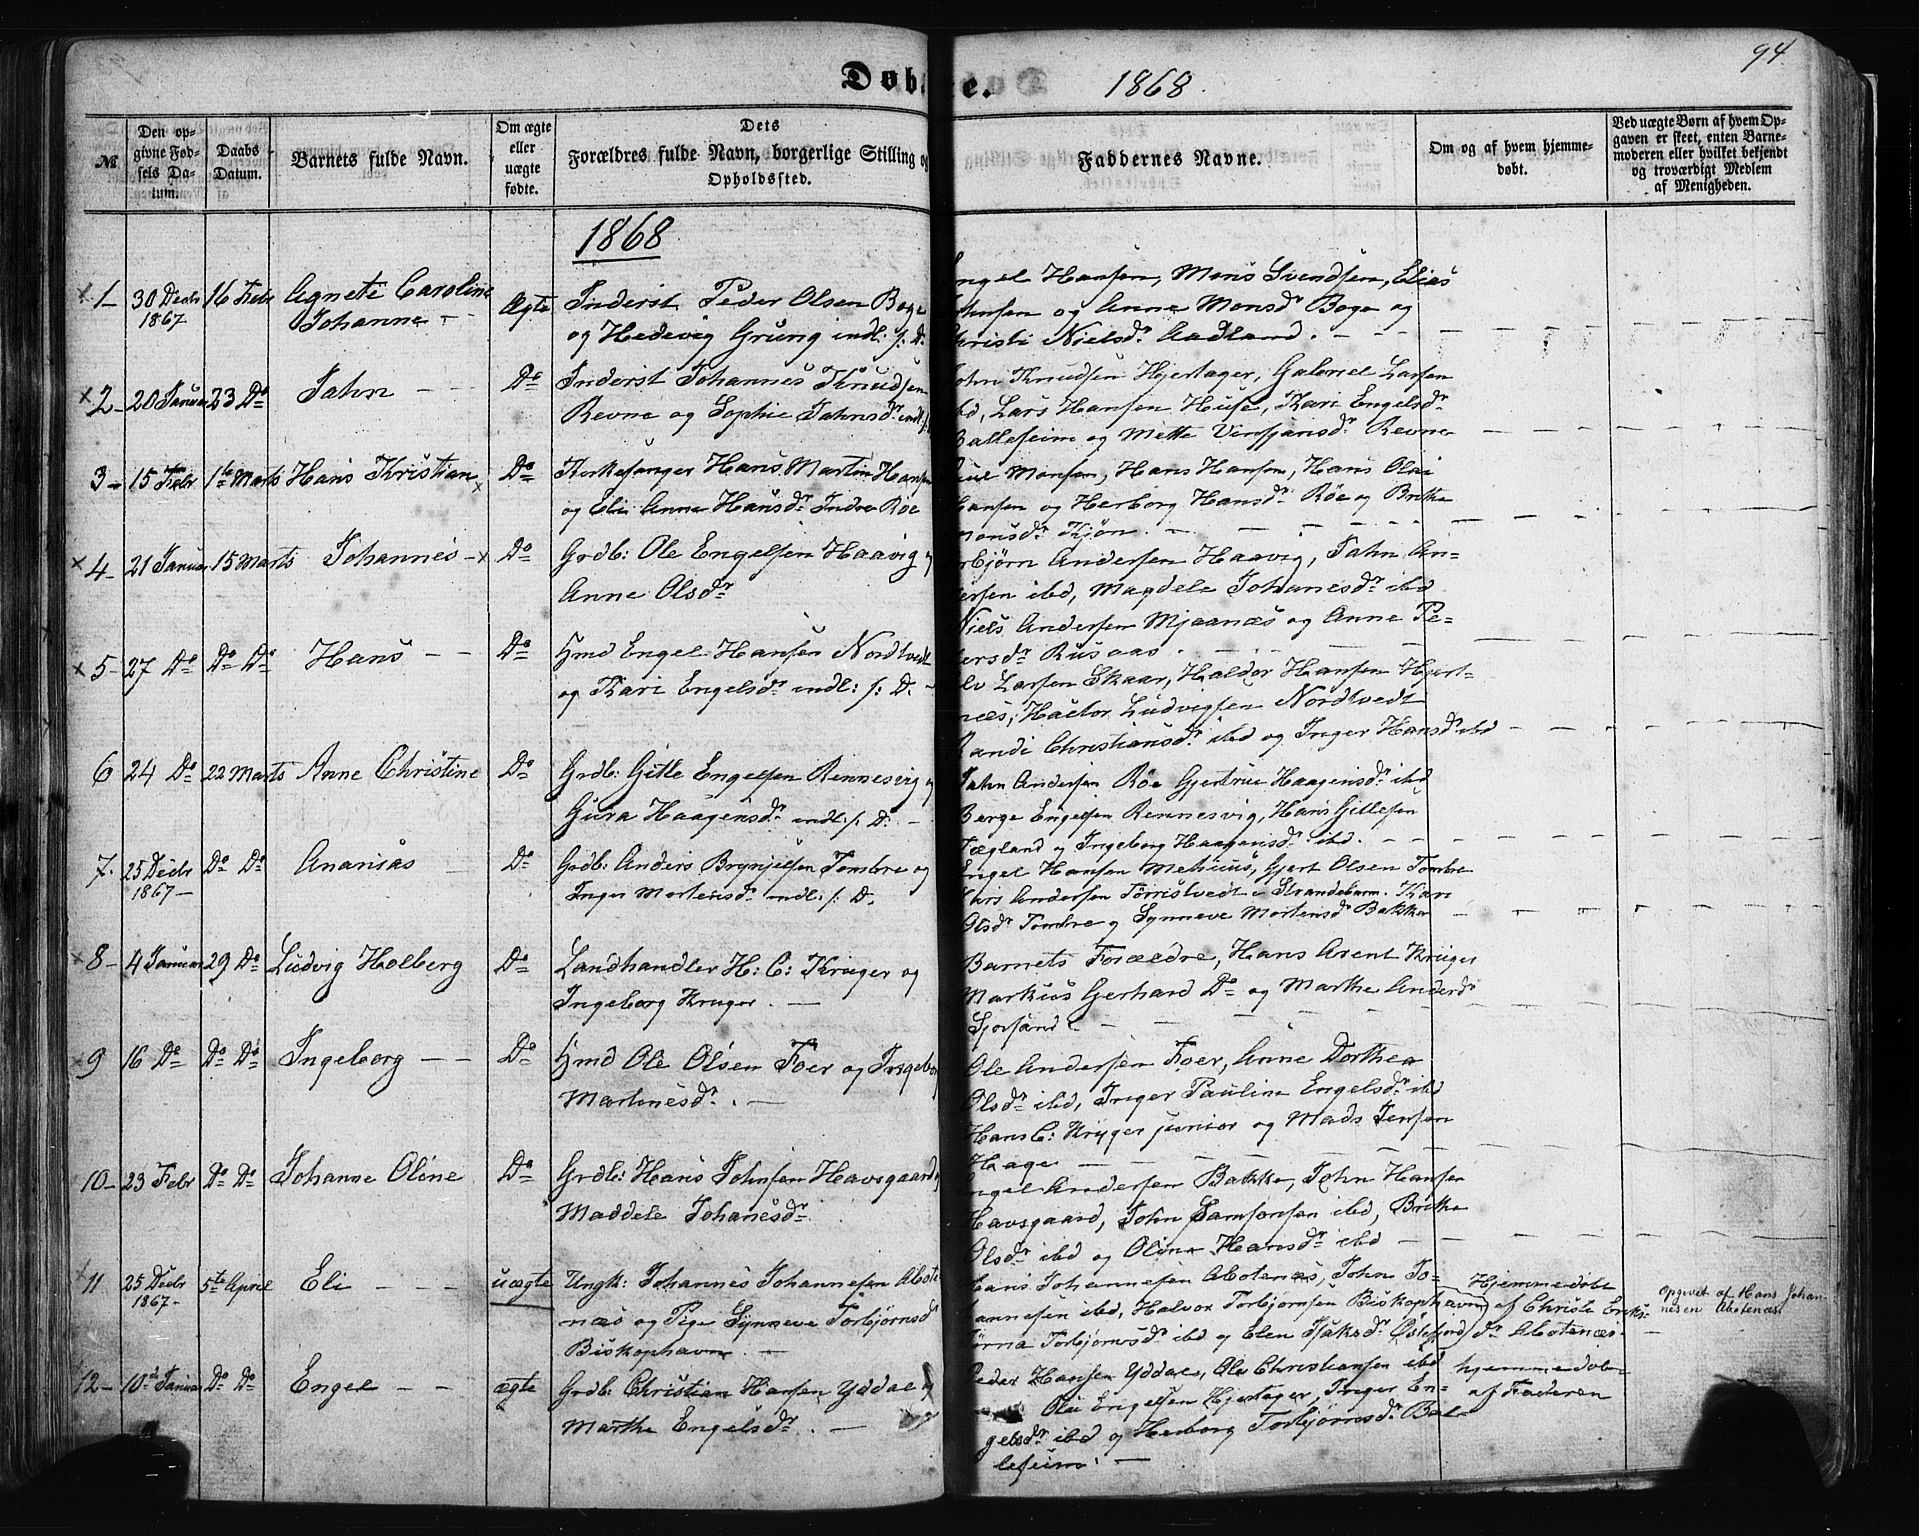 94
Døb
e.
1868
№
Den op-
givne Fød-
sels Da-
tum.
Daabs
Datum.
Barnets fulde Navn.
Om ægte
eller
uægte
fødte.
Dets
Forældres fulde Navn, borgerlige Stilling og
Opholdssted.
Faddernes Navne.
Om og af hvem hjemme-
døbt.
Ved uægte Børn af hvem Op-
gaven er skeet, enten Barne-
moderen eller hvilket bekjendt
og troværdigt Medlem
af Menigheden.
1868
1 30 Decbr 16 Febr Agnete Caroline Ægte Inderst Peder Olsen Boge
1867 Johanne og Hedevig Grung indl: s: D.
Engel Hansen, Mons Svendsen, Elias
Johnsen og Anne Monsdr Boge og
Christi Nielsdr Aadland.
2 20 Januar 23 Do Jahn Do Inderst Johannes Knudsen
Revne og Sophie Jahnsdr indl:
John Knudsen Hjertager, Gabriel Larsen
ibd, Lars Hansen Huse, Kari Engelsdr
Balleseim og Mette Vinsjansdr Revne
3 15 Febr 1te Marts Hans Kristian Do Kirkesanger Hans Martin Hansen
og Eli Anne Hansdr Indre Røe
Monsen, Hans Hansen, Hans Olai
Hansen og Herborg Hansdr Røe og Brithe
Monsdr Kjøn.
4 21 Januar 15 Marts Johannes Do Grdb: Ole Engelsen Haavig
Anne Olsdr
Andersen Haavig, Jahn An-
dersen ibd, Magdele Johanesdr ibd
Niels Andersen Mjaanæs og Anne Pe-
dersdr Rusaas.
5 27 Do Do Do Hans Do Hmd Engel Hansen Nordtvedt
og Kari Engelsdr indl: s: D.
Larsen Skaar, Haldor Hansen Hjert-
næs, Hactor Ludvigsen Nordtvedt
Randi Christiansdr ibd og Inger Hansdr ibd
6 24 Do 22 Marts Anne Christine Do Grdb: Gitle Engelsen Rennesvig
Gura Haagensdr indl: s: D.
Jahn Andersen Røe Gjertrue Haagensdr ibd
Børge Engelsen Rennesvig, Hans Gitlesen
Tægland og Ingeborg Haagensdr ibd.
7. 25 Decbr Do Do Ananias Do Grdb: Anders Brynjelsen Tombre og
1867 Inger Mortensdr indl: s: D.
Engel Hansen Mehuus, Gjert Olsen Tombre
Lars Andersen Tørristvedt i Strandebarm. Kari
Olsdr Tombre og Synneve Mortensdr Bakke
8 4 Januar 29 Do Ludvig Holberg Do Landhandler H: C: Krüger og
Ingeborg Kruger.
Barnets Forældre, Hans Arent Krüger
Markus Gerhard Do og Marthe Andersdr
9 16 Do Do Do Ingeborg Do Hmd Ole Olsen Foer og Ingebor
Mortensdr.
Ole Andersen Foer, Anne Dorthea
Olsdr ibd, Inger Pauline Engelsdr ibd
Hans C: Kryger junior og Mads Jensen
Haage
10 23 Febr Do Do Johanne Oline Do Grdb: Hans Johnsen Havsgaard
Maddele Johanesdr
Engel Andersen Bakke, John Hansen
Havsgaard, John Samsonsen ibd, Brithe
Olsdr ibd og Oline Hansdr ibd
11 25 Decbr 5te April Eli uægte Ungk: Johannes Johannesen Abote-
1867 næs og Pige Synneve Torbjørnsdr
Biskophavn.
Hans Johannesen Abotenæs, John Jo-
hannesen ibd, Halvor Torbjørnsen Biskophavn
Torbjørnsdr ibd og Elen Isaksdr
Hjemmedøbt
af Christi Eriks-
dr Abotenæs.
Opgivet af Hans Johan-
nesen Abotenæs
12 10de Januar Do Do Engel ægte Grdb: Christian Hansen Yddal
Marthe Engelsdr.
Peder Hansen Yddal, Ole Christiansen ibd
Ole Engelsen Hjertager, Inger En-
gelsdr ibd og Herborg Torbjørnsdr Bal-
leseim.
hjemmedøbt
af Faderen